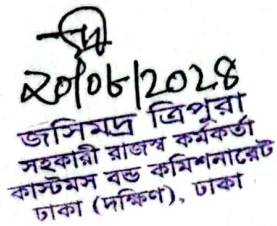 ২০/০৮/২০২৪
জসিমদ্র ত্রিপুরা
সহকারী রাজস্ব কর্মকর্তা
কাস্টমস বন্ড কমিশনারেট
ঢাকা (দক্ষিণ), ঢাকা